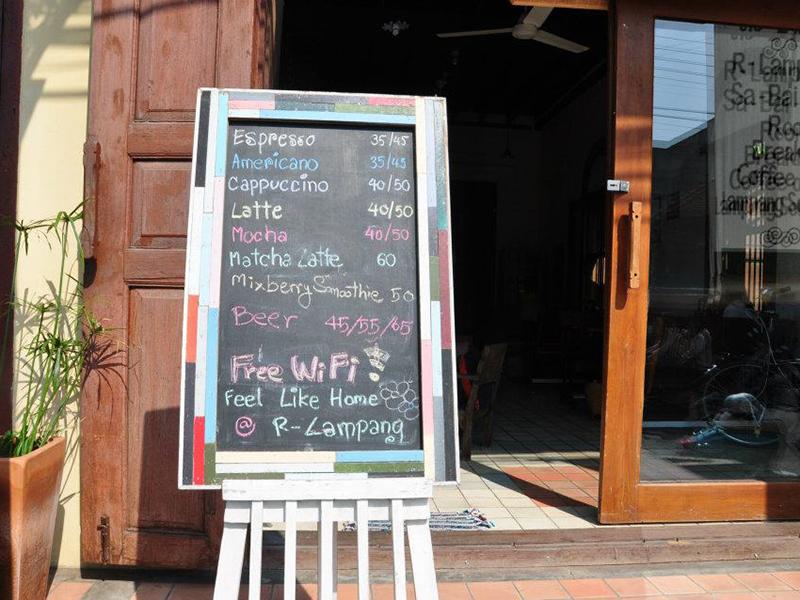 Espresso 35/45
Americano 35/45
Cappuccino 40/50
Latte 40/50
Mocha 40/50
Matcha Latte 60
Mixberry Smoothie 50
Beer 45/55/65
Free WiFi!
Feel Like Home
@ R-Lampang
R-Lampa
Sa-Bai
Coffee
Lampang